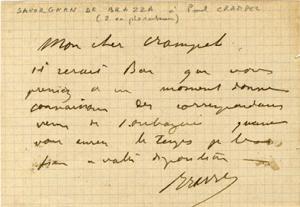 SAVORGNAN DE BRAZZA à Paul CRAMPEL
Mon cher Crampel
Il serait Bon que vous
preniez à un moment donné
connaissance des correspondances
venues de l'Oubangui quand
vous aurez le temps je
à votre disposition
Brazza